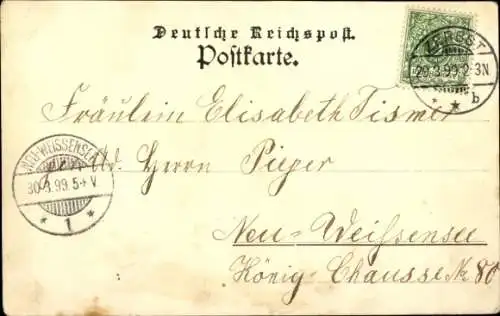 Deutsche Reichspost.
Postkarte.
ZERBST
29.3.99.2-3N
* * b
Fräulein Elisabeth Tismer
NEU-WEISSENSEE
30.3.99.5-V
* 1 *
Herrn Pieper
Neu-Weißensee
König-Chaussee № 80